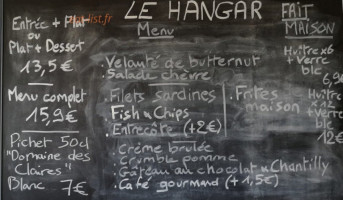 LE HANGAR
Menu
Entrée + Plat
ou
Plat + Dessert
13,5€
Menu complet
15,9€
Pichet 50cl
"Domaine des
Claires"
Blanc 7€
. Velouté de butternut
. Salade chèvre
. Filets sardines
. Fish n Chips
. Entrecôte (+2€)
. Frites
maison
. Crème brulée
. Crumble pomme
. Gâteau au chocolat Chantilly
. Café gourmand (+1,5€)
FAIT
MAISON
Huître x6
+ Verre
blc
Huître
x12
+ Verre
blc
12€